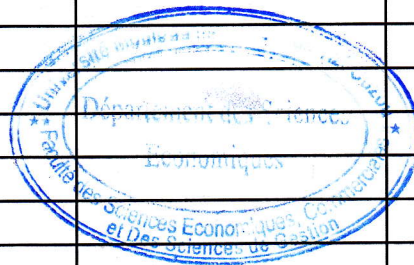 Université
Département des Sciences
Economiques
Faculté des Sciences Economiques, Commerciales
et Des Sciences de Gestion